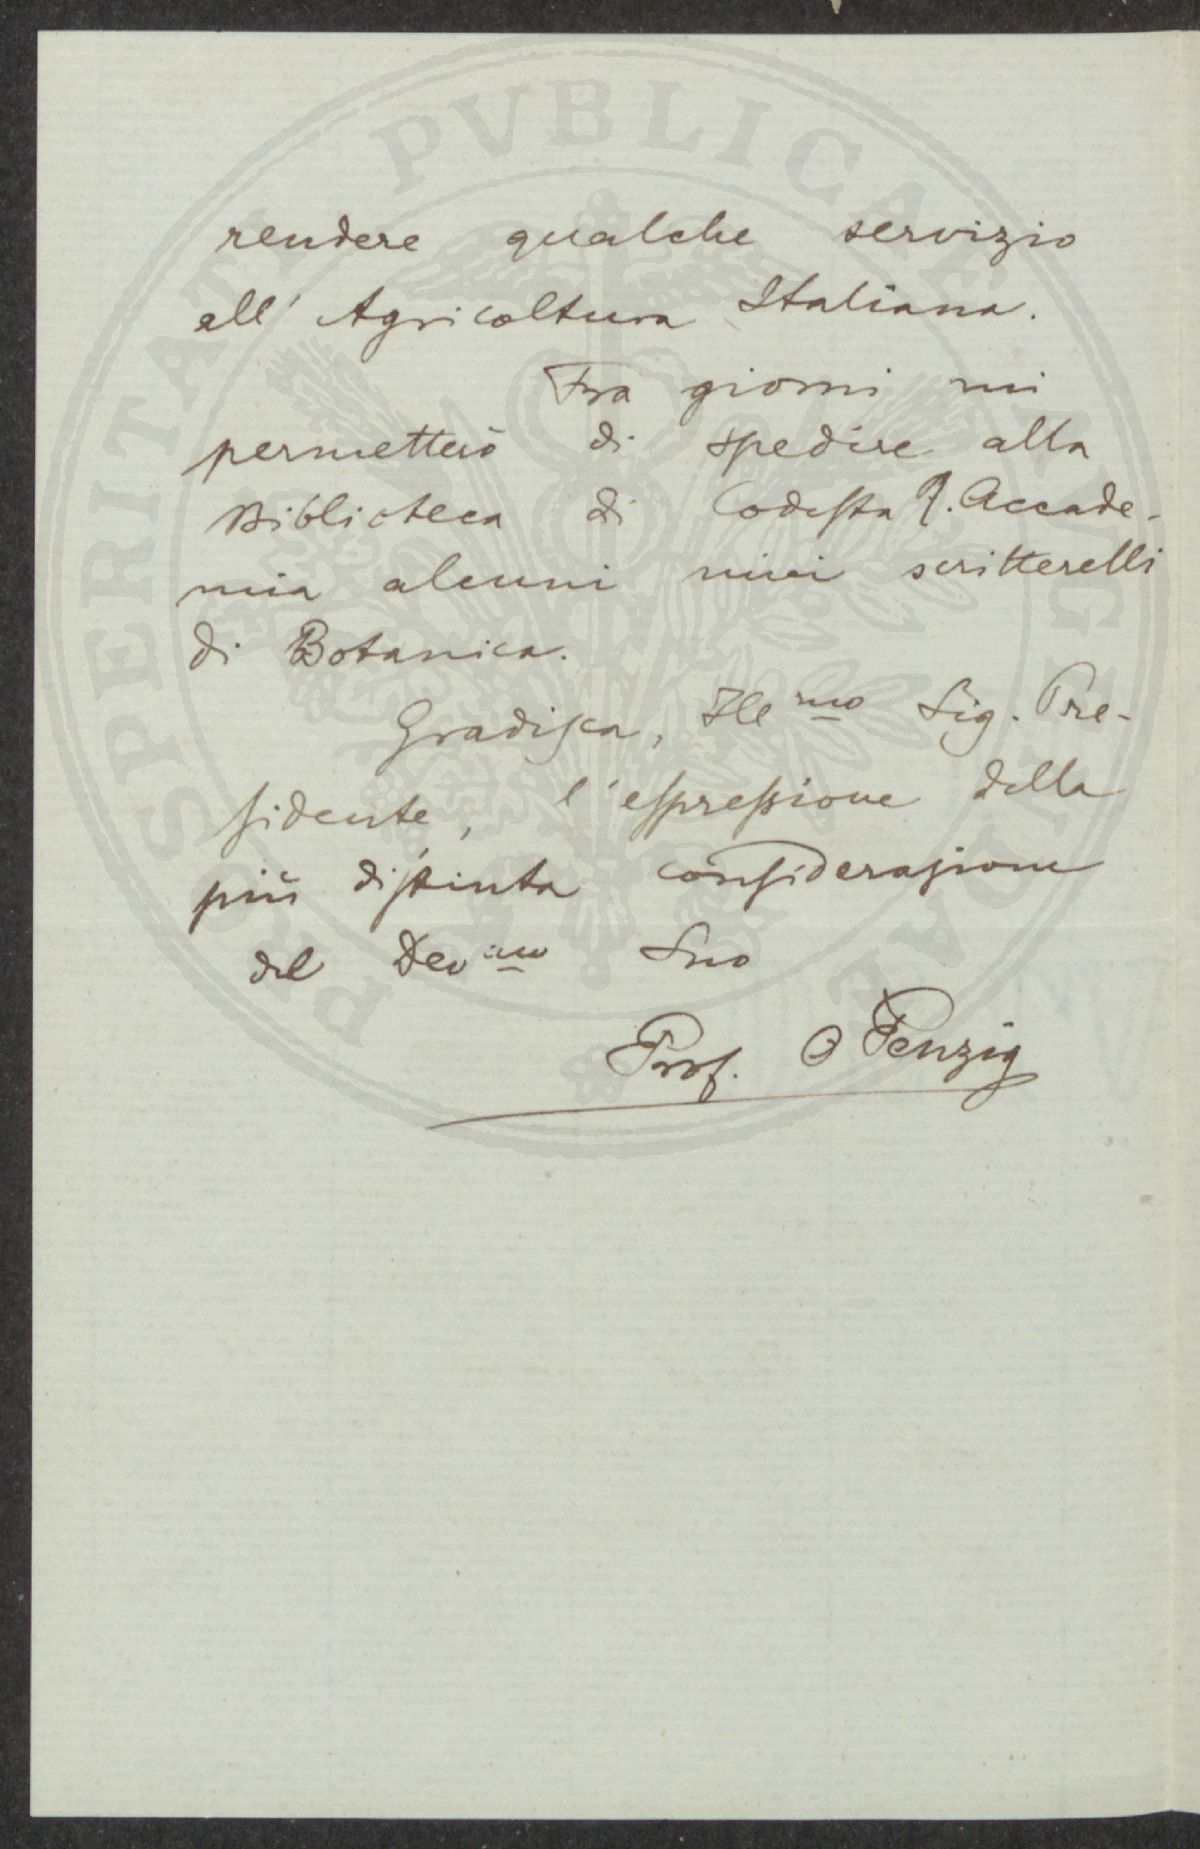 rendere qualche servizio
all' Agricoltura Italiana.
Fra giorni mi
permetterò di spedire alla
Biblioteca di Codesta R. Accade-
mia alcuni miei scritterelli
di Botanica.
Gradisca, Ill<sup>mo</sup> Sig. Pre-
sidente, l'espressione della
più distinta considerazione
del Dev<sup>mo</sup> Suo
Prof. O Penzig
PROSPERITATI PVBLICAE AVGENDAE